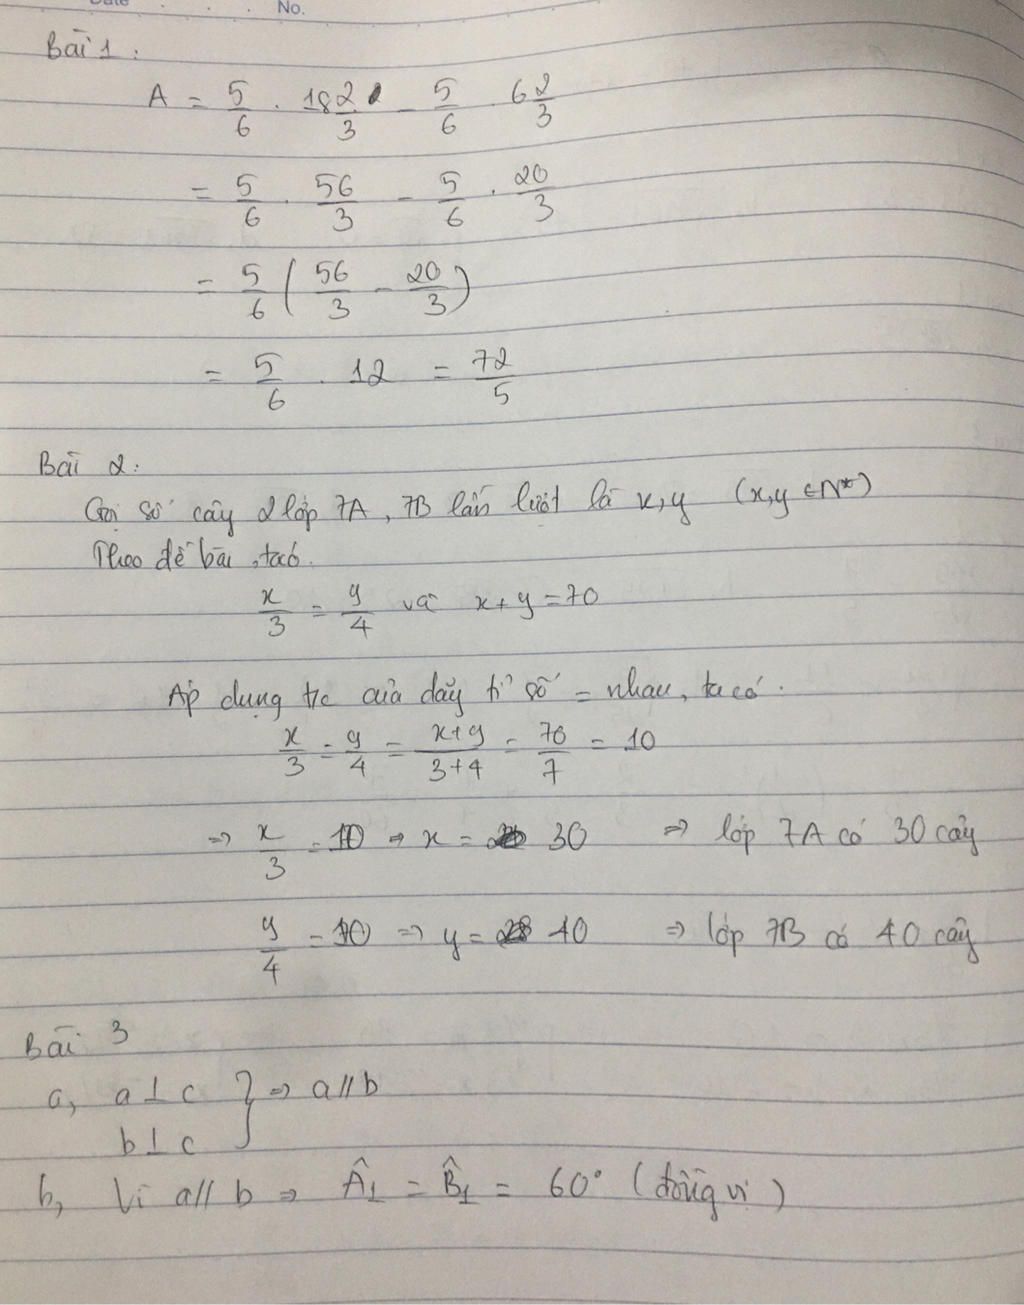 Date No.
Bài 1:
A = 5/6 . 18 2/3 - 5/6 . 6 2/3
= 5/6 . 56/3 - 5/6 . 20/3
= 5/6 ( 56/3 - 20/3 )
= 5/6 . 12 = 72/5
Bài 2:
Gọi số cây 2 lớp 7A, 7B lần lượt là x, y (x,y ∈ N*)
Theo đề bài, ta có.
x/3 = y/4 và x + y = 70
Áp dụng t/c của dãy tỉ số = nhau, ta có.
x/3 = y/4 = x+y/3+4 = 70/7 = 10
⇒ x/3 = 10 ⇒ x = 30 ⇒ lớp 7A có 30 cây
y/4 = 10 ⇒ y = 40 ⇒ lớp 7B có 40 cây
Bài 3
a, a ⊥ c } ⇒ a // b
b ⊥ c
b, Vì a // b ⇒ Â1 = B̂1 = 60° (đồng vị)